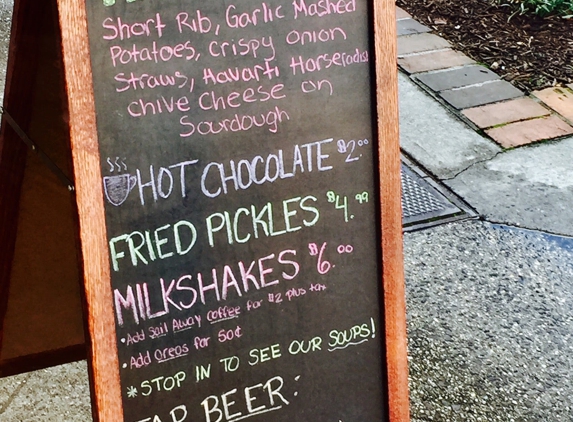 Short Rib, Garlic Mashed
Potatoes, Crispy onion
Straws, Havarti Horseradish
chive Cheese on
Sourdough
HOT CHOCOLATE $2.00
FRIED PICKLES $4.99
MILKSHAKES $6.00
• Add Sail Away coffee for $2 plus tax
• Add Oreos for 50¢
* STOP IN TO SEE OUR SOUPS!
TAP BEER: